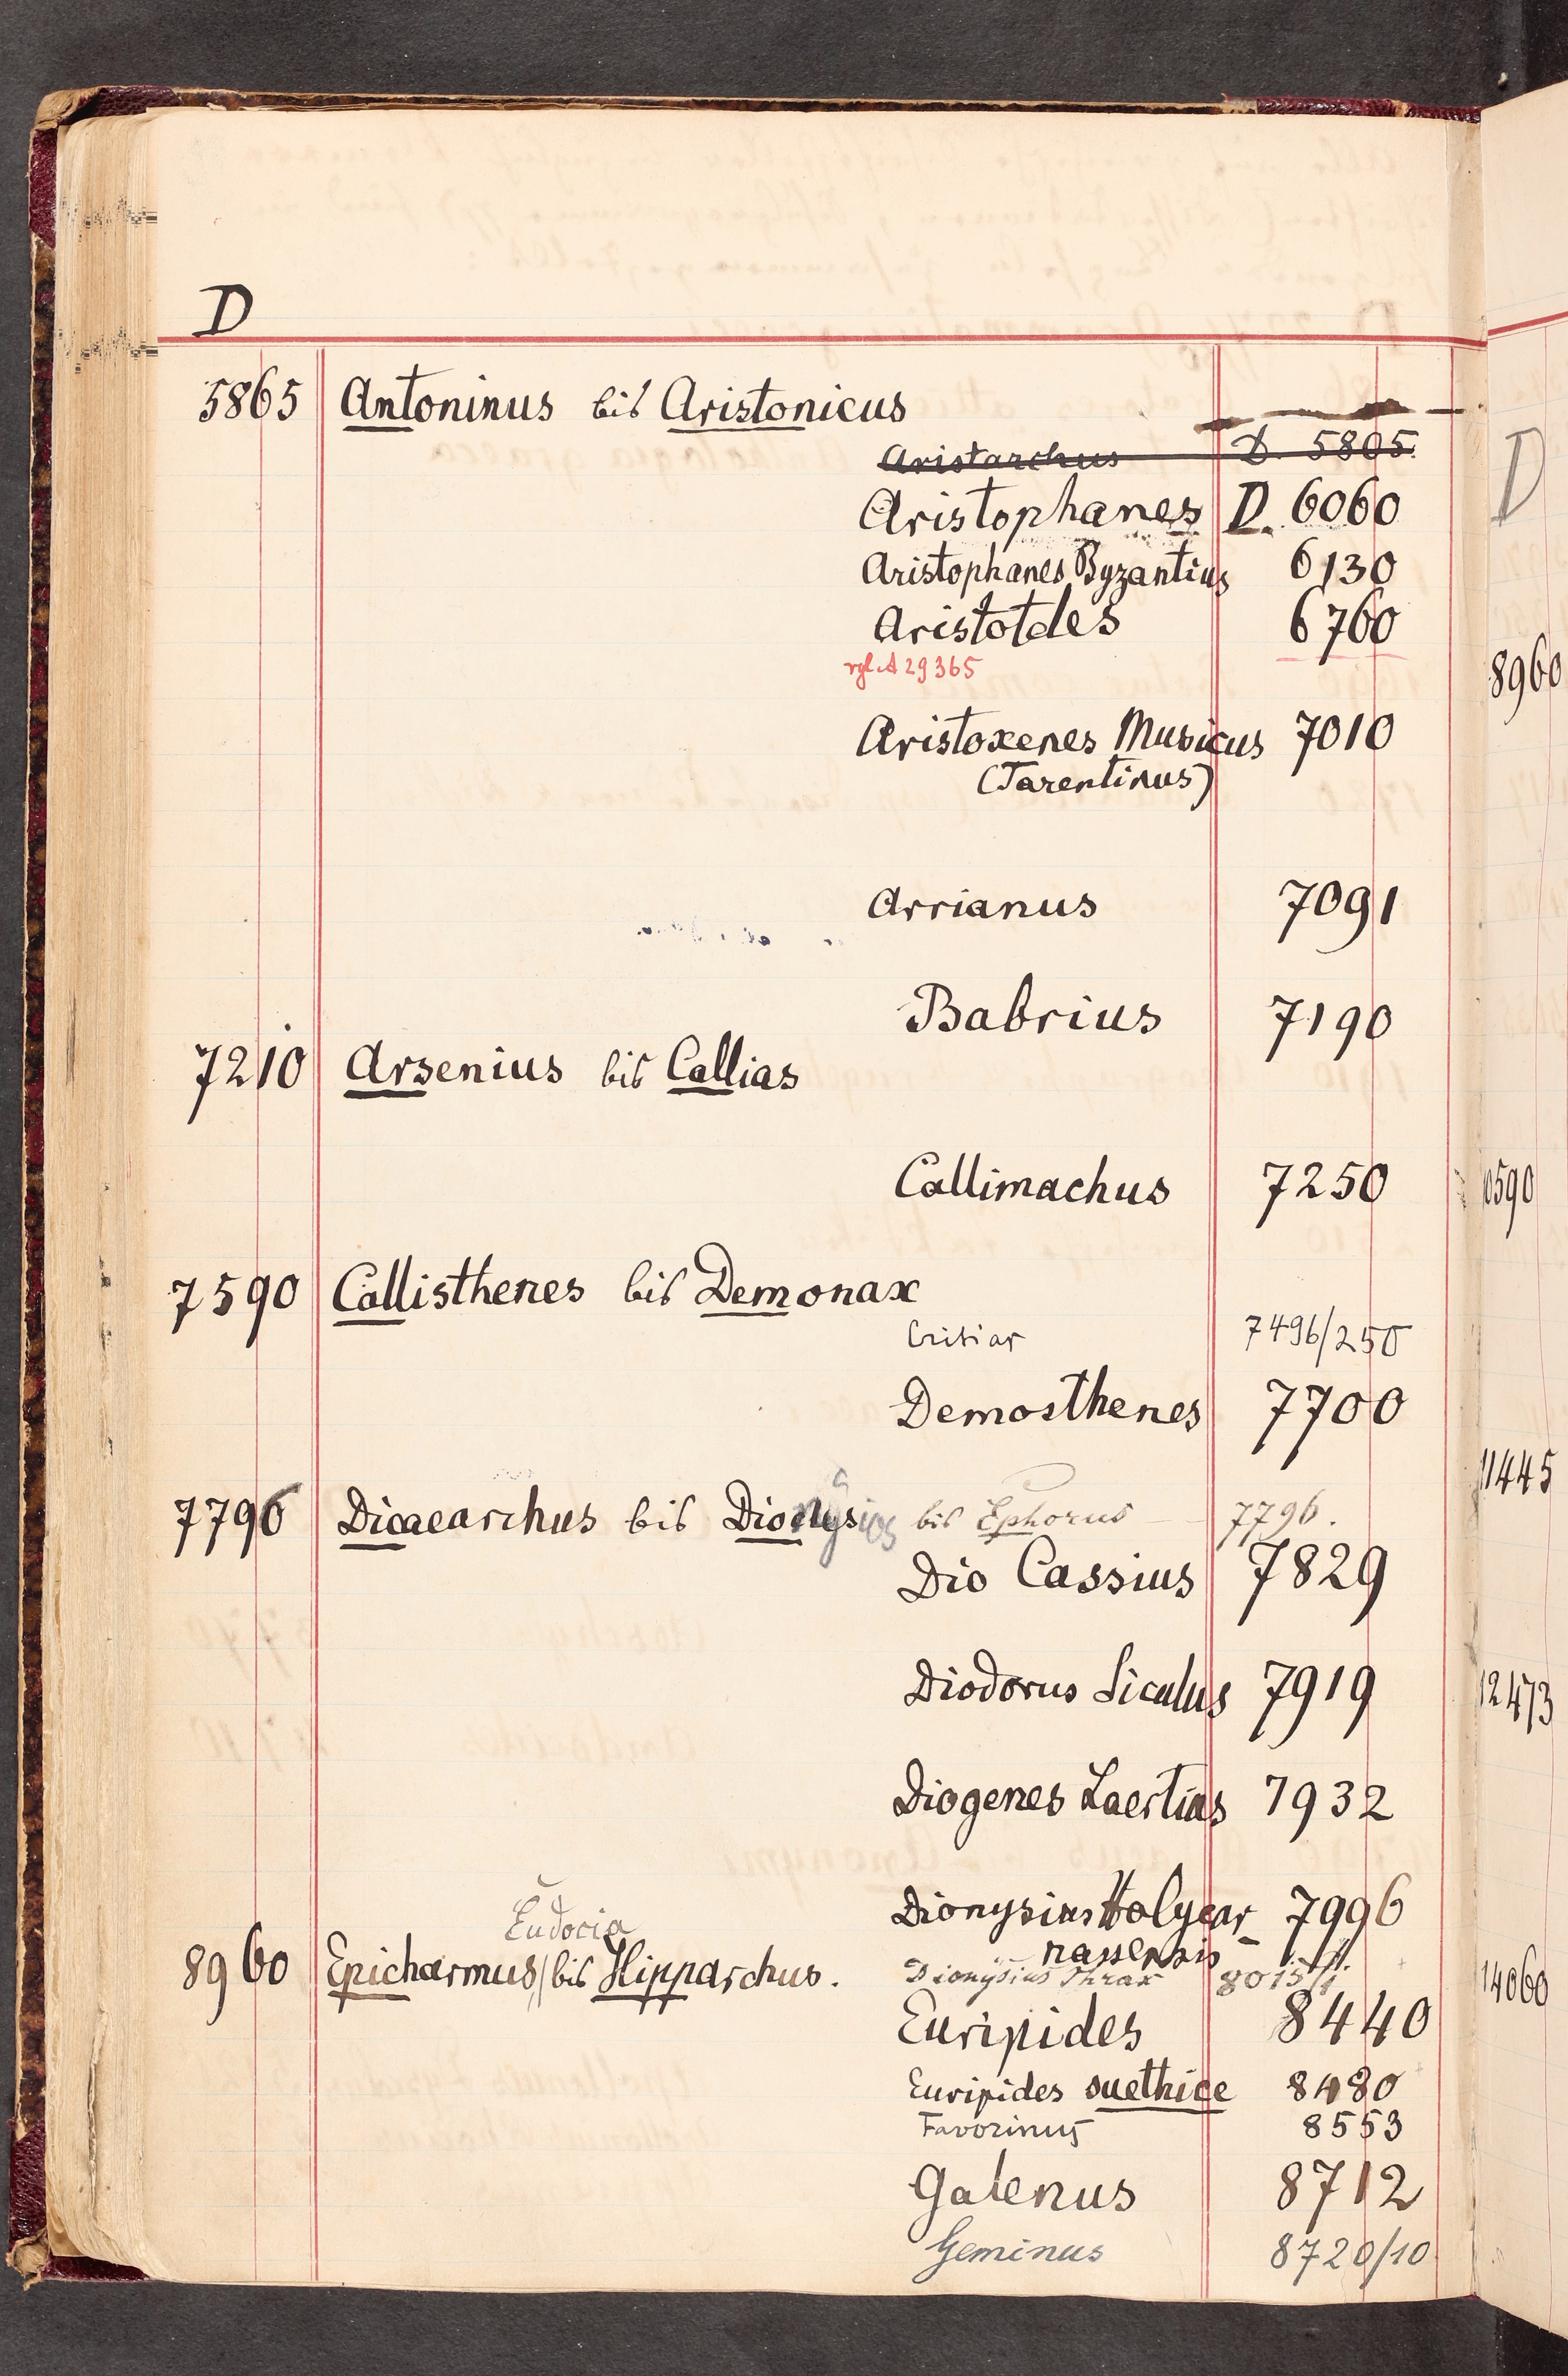 D
5865 Antoninus bis Aristonicus
Aristarchus D. 5805
Aristophanes D. 6060
Aristophanes Byzantius 6130
Aristoteles 6760
vgl. A 29365
Aristoxenes Musicus 7010
(Tarentinus)
Arrianus 7091
Babrius 7190
7210 Arsenius bis Callias
Callimachus 7250
7590 Callisthenes bis Demonax
Critias 7496/250
Demosthenes 7700
7796 Dicaearchus bis Dionysius bis Ephorus 7796.
Dio Cassius 7829
Diodorus Siculus 7919
Diogenes Laertius 7932
Dionysius Halycar 7996
nassensis
Eudocia
8960 Epicharmus bis Hipparchus.
Dionysius Thrax 8015/1
Euripides 8440
Euripides suethice 8480
Favorinus 8553
Galenus 8712
Geminus 8720/10
D
8960
10590
11445
12473
14060